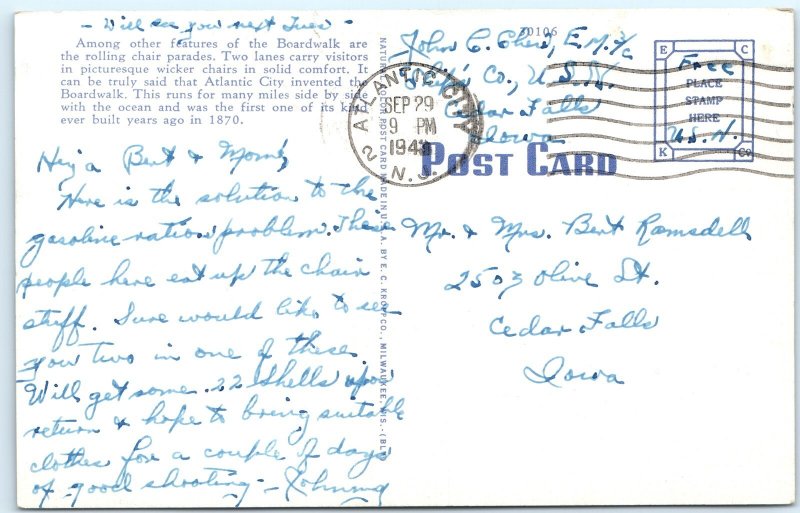 - Will see you next Tues -
Among other features of the Boardwalk are
the rolling chair parades. Two lanes carry visitors
in picturesque wicker chairs in solid comfort. It
can be truly said that Atlantic City invented the
Boardwalk. This runs for many miles side by side
with the ocean and was the first one of its kind
ever built years ago in 1870.
Heya Bert & Mom,
Here is the solution to the
gasoline ration problem. These
people here eat up the chair
stuff. Sure would like to see
you two in one of these.
Will get some .22 shells upon
return & hope to bring suitable
clothes for a couple of days
of good shooting - Johnny
POST CARD MADE IN U.S.A. BY E. C. KROPP CO., MILWAUKEE, WIS.
30106
John C. E.M. 2/c
Ship's Co., U.S.N.
Cedar Falls
Iowa
ATLANTIC CITY
SEP 29
9 PM
194
N.J.
2
POST CARD
E C
Free
PLACE
STAMP
HERE
U.S.N.
K Co
Mr. & Mrs. Bert Ramsdell
2503 Olive St.
Cedar Falls
Iowa